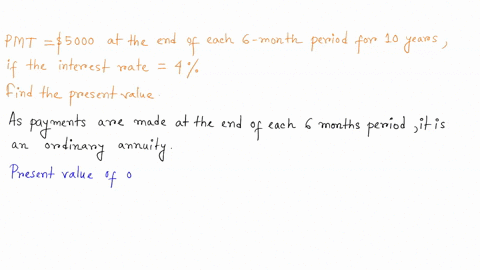 PMT = $5000 at the end of each 6-month period for 10 years,
if the interest rate = 4%
Find the present value.
As payments are made at the end of each 6 months period, it is
an ordinary annuity.
Present value of o